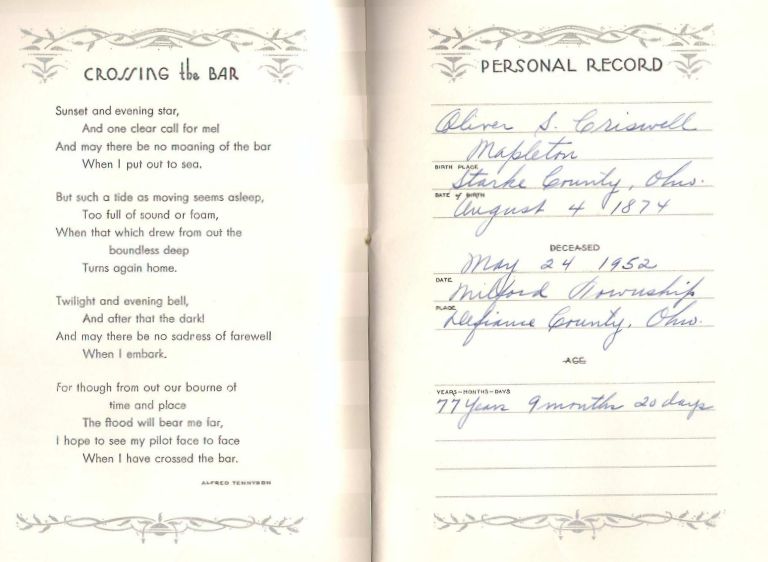 CROSSING the BAR
Sunset and evening star,
And one clear call for me!
And may there be no moaning of the bar
When I put out to sea.
But such a tide as moving seems asleep,
Too full of sound or foam,
When that which drew from out the
boundless deep
Turns again home.
Twilight and evening bell,
And after that the dark!
And may there be no sadress of farewell
When I embark.
For though from out our bourne of
time and place
The flood will bear me far,
I hope to see my pilot face to face
When I have crossed the bar.
ALFRED TENNYSON
PERSONAL RECORD
Oliver S. Criswell
Mapleton
BIRTH PLACE
Starke County, Ohio.
DATE of BIRTH
August 4 1874
DECEASED
May 24 1952
DATE
Milford Township
PLACE
Defiance County, Ohio.
AGE
YEARS-MONTHS-DAYS
77 Years 9 months 20 days